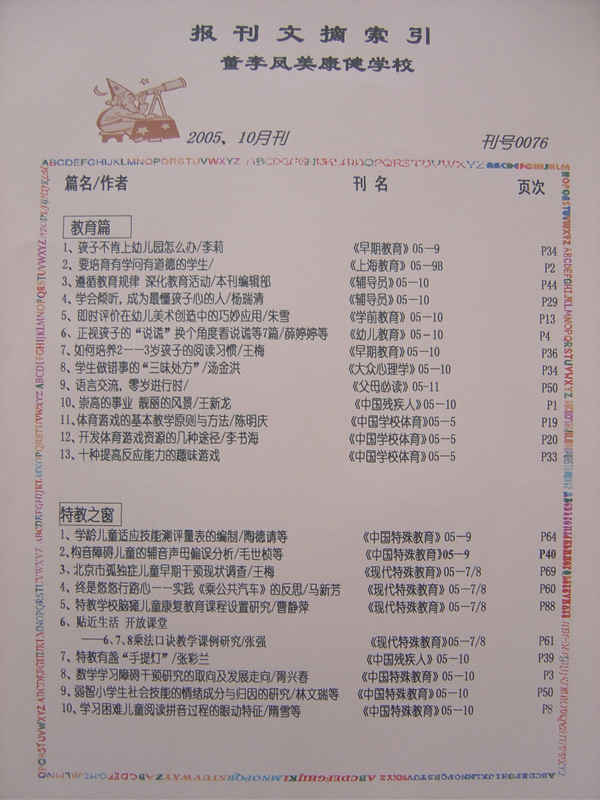 报刊文摘索引
董李凤美康健学校
2005、10月刊 刊号0076
ABCDEFGHIJKLMNOPQRSTUVWXYZ ABCDEFGHIJKLMNOPQRSTUVWXYZ
篇名/作者 刊 名 页次
教育篇
1、孩子不肯上幼儿园怎么办/李莉 《早期教育》05-9 P34
2、要培育有学问有道德的学生/ 《上海教育》05-9B P2
3、遵循教育规律 深化教育活动/本刊编辑部 《辅导员》05-10 P44
4、学会倾听,成为最懂孩子心的人/杨瑞清 《辅导员》05-10 P29
5、即时评价在幼儿美术创造中的巧妙应用/朱雪 《学前教育》05-10 P13
6、正视孩子的“说谎”换个角度看说谎等7篇/薛婷婷等 《幼儿教育》05-10 P4
7、如何培养2——3岁孩子的阅读习惯/王梅 《早期教育》05-10 P36
8、学生做错事的“三味处方”/汤金洪 《大众心理学》05-10 P34
9、语言交流,零岁进行时/ 《父母必读》05-11 P50
10、崇高的事业 靓丽的风景/王新龙 《中国残疾人》05-10 P1
11、体育游戏的基本教学原则与方法/陈明庆 《中国学校体育》05-5 P19
12、开发体育游戏资源的几种途径/李书海 《中国学校体育》05-5 P20
13、十种提高反应能力的趣味游戏 《中国学校体育》05-5 P33
特教之窗
1、学龄儿童适应技能测评量表的编制/陶德请等 《中国特殊教育》05-9 P64
2、构音障碍儿童的辅音声母偏误分析/毛世桢等 《中国特殊教育》05-9 P40
3、北京市孤独症儿童早期干预现状调查/王梅 《现代特殊教育》05-7/8 P69
4、终是悠悠行路心——实践《乘公共汽车》的反思/马新芳 《现代特殊教育》05-7/8 P60
5、特教学校脑瘫儿童康复教育课程设置研究/曹静萍 《现代特殊教育》05-7/8 P88
6、贴近生活 开放课堂
——6、7、8乘法口诀教学课例研究/张强 《现代特殊教育》05-7/8 P61
7、特教有盏“手提灯”/张彩兰 《中国残疾人》05-10 P39
8、数学学习障碍干预研究的取向及发展走向/胥兴春 《中国特殊教育》05-10 P3
9、弱智小学生社会技能的情绪成分与归因的研究/林文瑞等 《中国特殊教育》05-10 P50
10、学习困难儿童阅读拼音过程的眼动特征/隋雪等 《中国特殊教育》05-10 P8